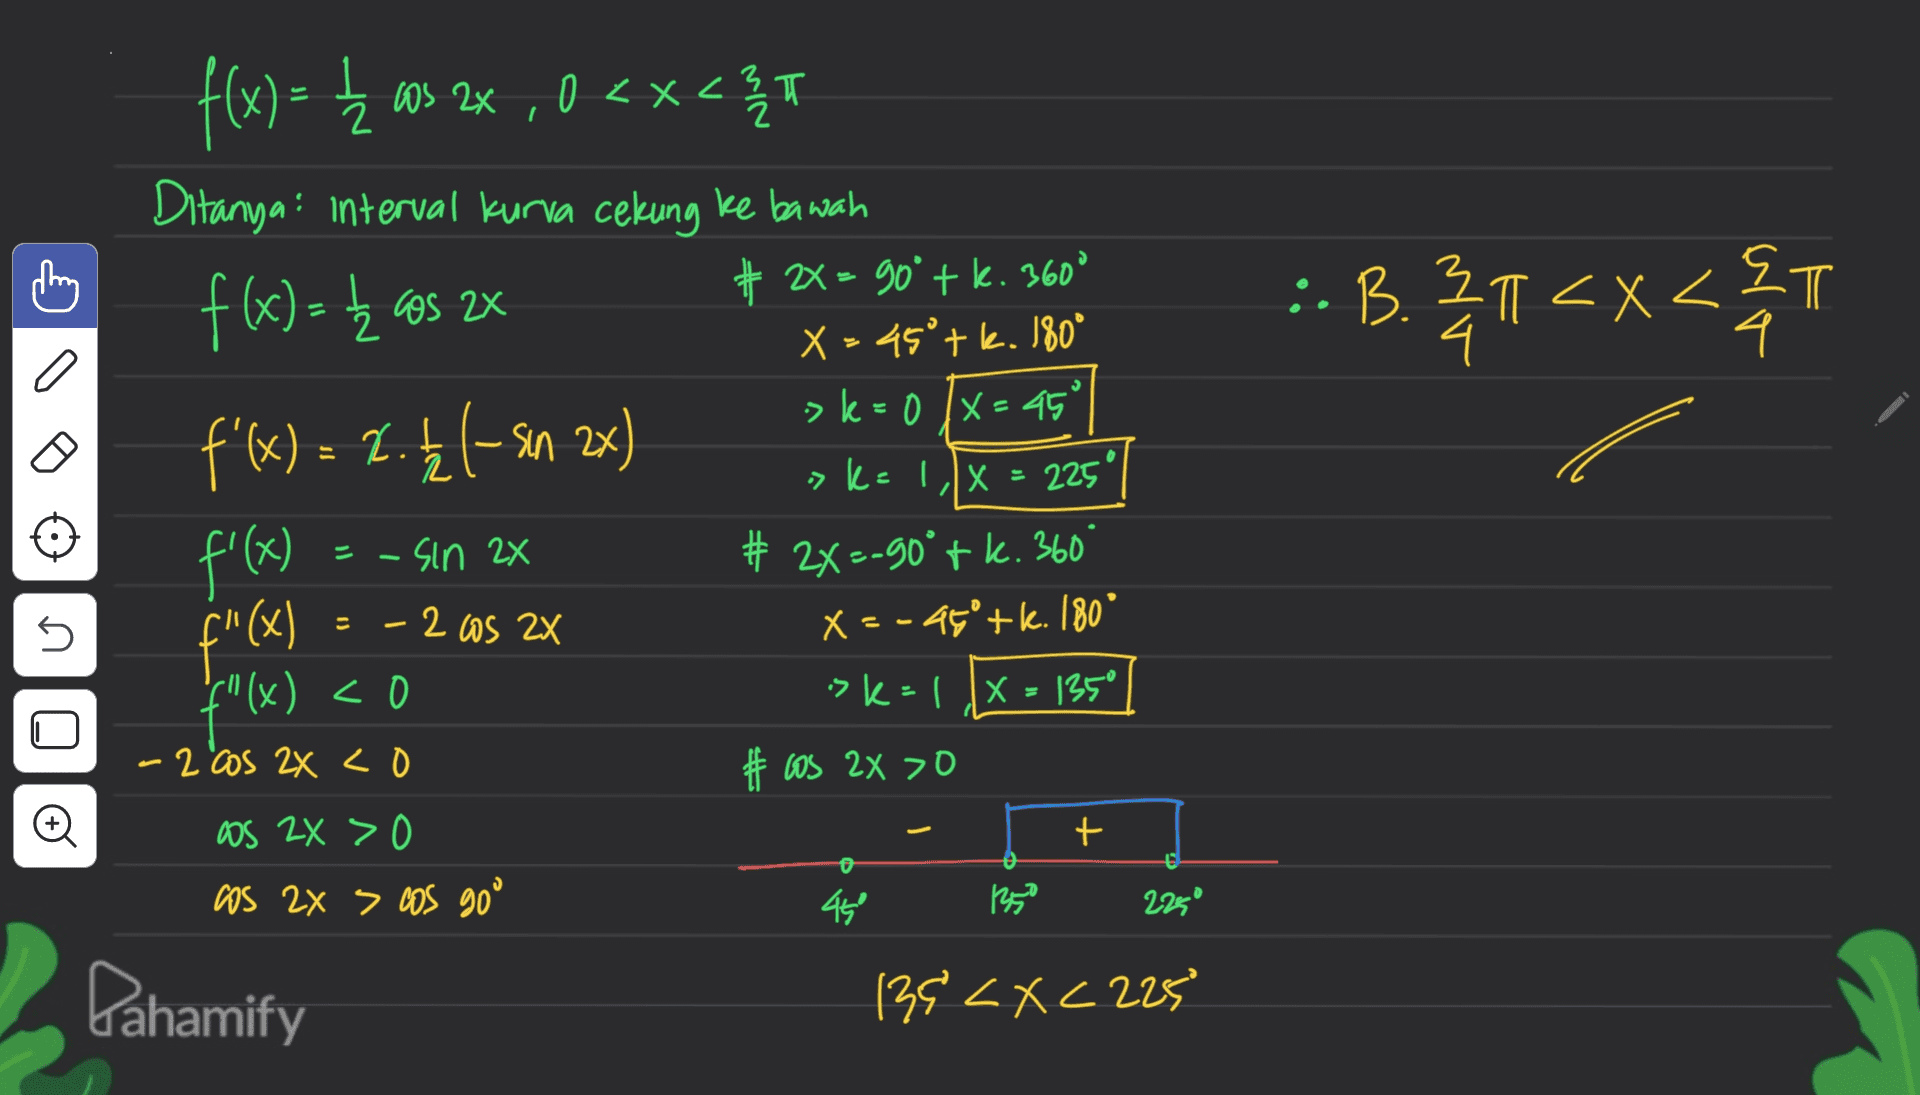 f(x) = 1/2 cos 2x , 0 < x < 3/2 π
Ditanya : interval kurva cekung ke bawah
f(x) = 1/2 cos 2x
f'(x) = 2 . 1/2 (- sin 2x)
f'(x) = - sin 2x
f''(x) = - 2 cos 2x
f''(x) < 0
- 2 cos 2x < 0
cos 2x > 0
cos 2x > cos 90°
# 2x = 90° + k. 360°
x = 45° + k. 180°
> k = 0 , x = 45°
> k = 1 , x = 225°
# 2x = -90° + k. 360°
x = - 45° + k. 180°
> k = 1 , x = 135°
# cos 2x > 0
- +
45° 135° 225°
135° < x < 225°
∴ B. 3/4 π < x < 5/4 π
Pahamify